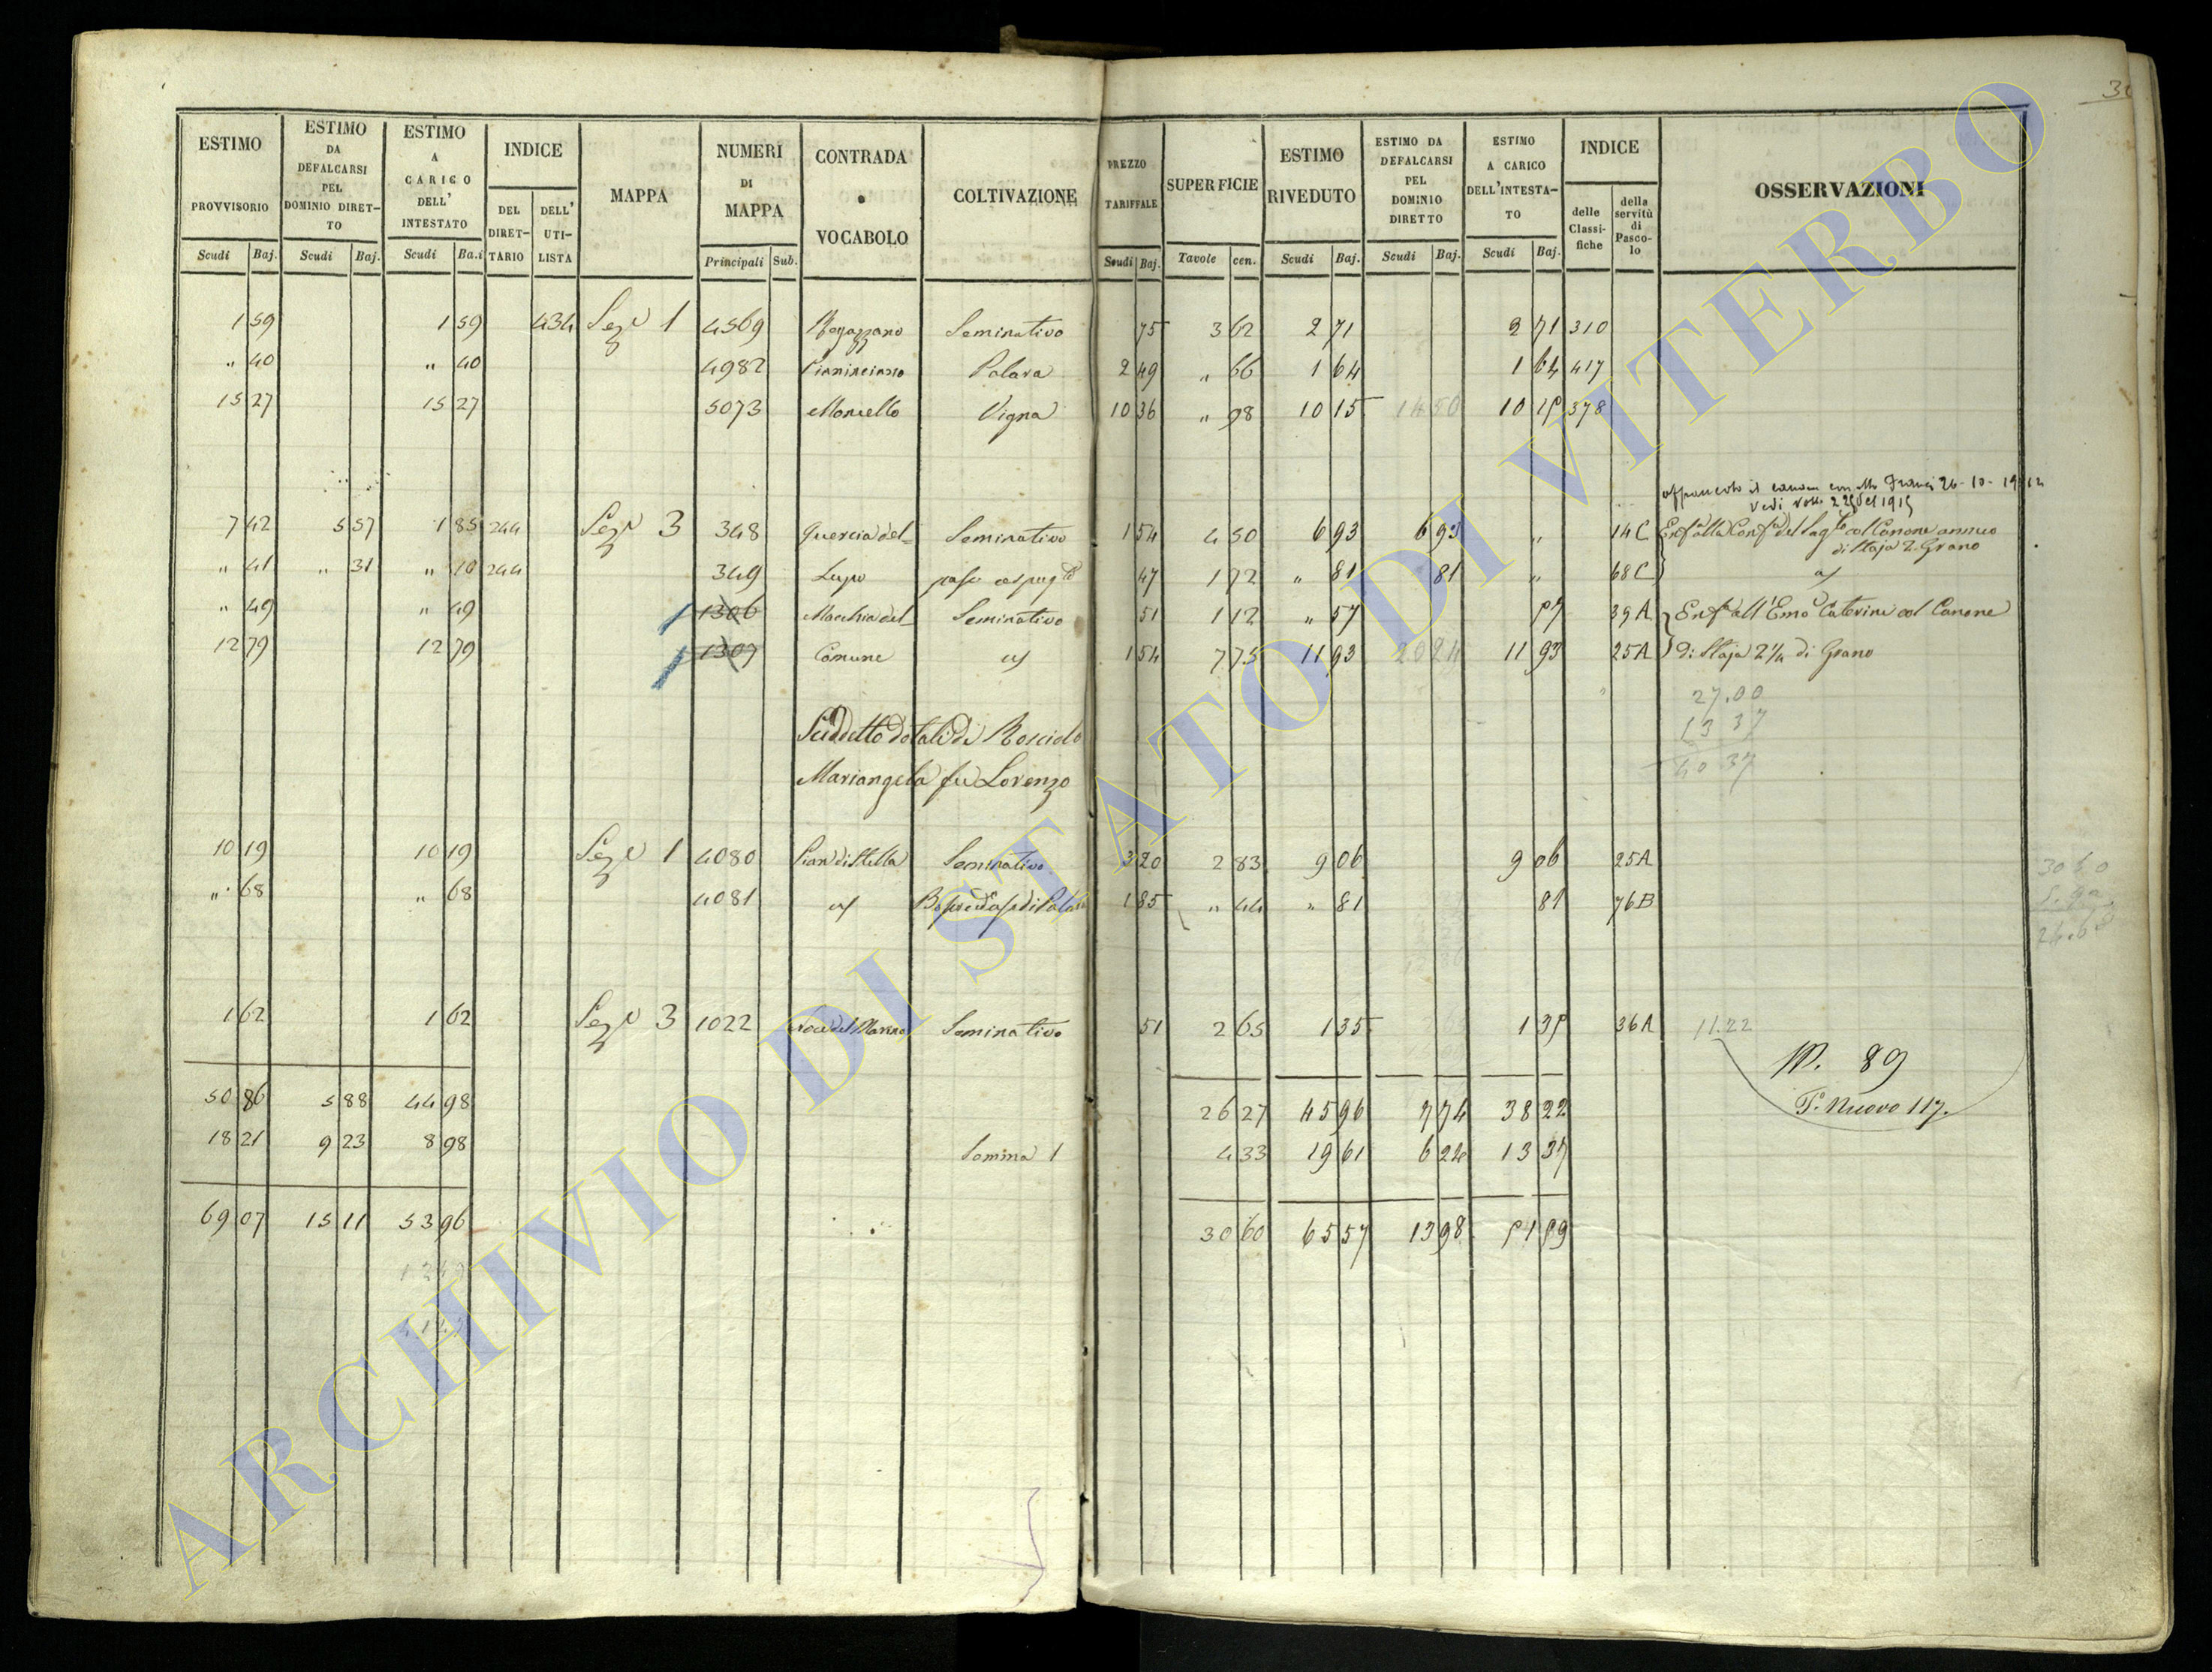 ESTIMO PROVVISORIO | ESTIMO DA DEFALCARSI PEL DOMINIO DIRETTO | ESTIMO A CARICO DELL' INTESTATO | INDICE | MAPPA | NUMERI DI MAPPA | CONTRADA o VOCABOLO | COLTIVAZIONE | PREZZO TARIFFALE | SUPERFICIE | ESTIMO RIVEDUTO | ESTIMO DA DEFALCARSI PEL DOMINIO DIRETTO | ESTIMO A CARICO DELL'INTESTATO | INDICE | OSSERVAZIONI
DEL DIRETTARIO | DELL' UTILISTA | delle Classifiche | della servitù di Pascolo
Scudi | Baj. | Scudi | Baj. | Scudi | Ba.i | Principali | Sub. | Scudi | Baj. | Tavole | cen. | Scudi | Baj. | Scudi | Baj. | Scudi | Baj.
1 59 | 1 59 | 434 | Sezᵉ 1 | 4569 | Ragazzano | Seminativo | 75 | 3 62 | 2 71 | 2 71 | 310
" 40 | " 40 | 4982 | Palara | 2 49 | " 66 | 1 64 | 1 64 | 417
15 27 | 15 27 | 5073 | Moncello | Vigna | 10 36 | " 98 | 10 15 | 14 50 | 10 15 | 378
26-10-1912
Vedi 1915
7 42 | 5 57 | 1 85 | 244 | Sezᵉ 3 | 348 | Quercia del | Seminativo | 1 54 | 4 50 | 6 93 | 6 93 | " | 14 C | col Canone annuo
di Staja 2. Grano
" 41 | " 31 | " 10 | 244 | 349 | Lupo | 47 | 1 72 | " 81 | 81 | " | 68 C
" 49 | " 49 | 1306 | Macchia del | Seminativo | 51 | 1 12 | " 57 | 57 | 39 A | Enfª all'Emo Caterini col Canone
12 79 | 12 79 | 1307 | Comune | 1 54 | 7 75 | 11 93 | 20 24 | 11 93 | 25 A | di Staja 2 1/4 di Grano
27.00
13 37
40 37
Suddetto dotali di Rosciolo
Mariangela fu Lorenzo
10 19 | 10 19 | Sezᵉ 1 | 4080 | Pian di Stella | Seminativo | 3 20 | 2 83 | 9 06 | 9 06 | 25 A
" 68 | " 68 | 4081 | 1 85 | " 44 | " 81 | 81 | 76 B
30 60
1 62 | 1 62 | Sezᵉ 3 | 1022 | Seminativo | 51 | 2 65 | 1 35 | 1 35 | 36 A | 11.22
M. 89
50 86 | 5 88 | 44 98 | 26 27 | 45 96 | 7 74 | 38 22 | P. Nuovo 117.
18 21 | 9 23 | 8 98 | Somma 1 | 4 33 | 19 61 | 6 24 | 13 37
69 07 | 15 11 | 53 96 | 30 60 | 65 57 | 13 98 | 51 59
ARCHIVIO DI STATO DI VITERBO